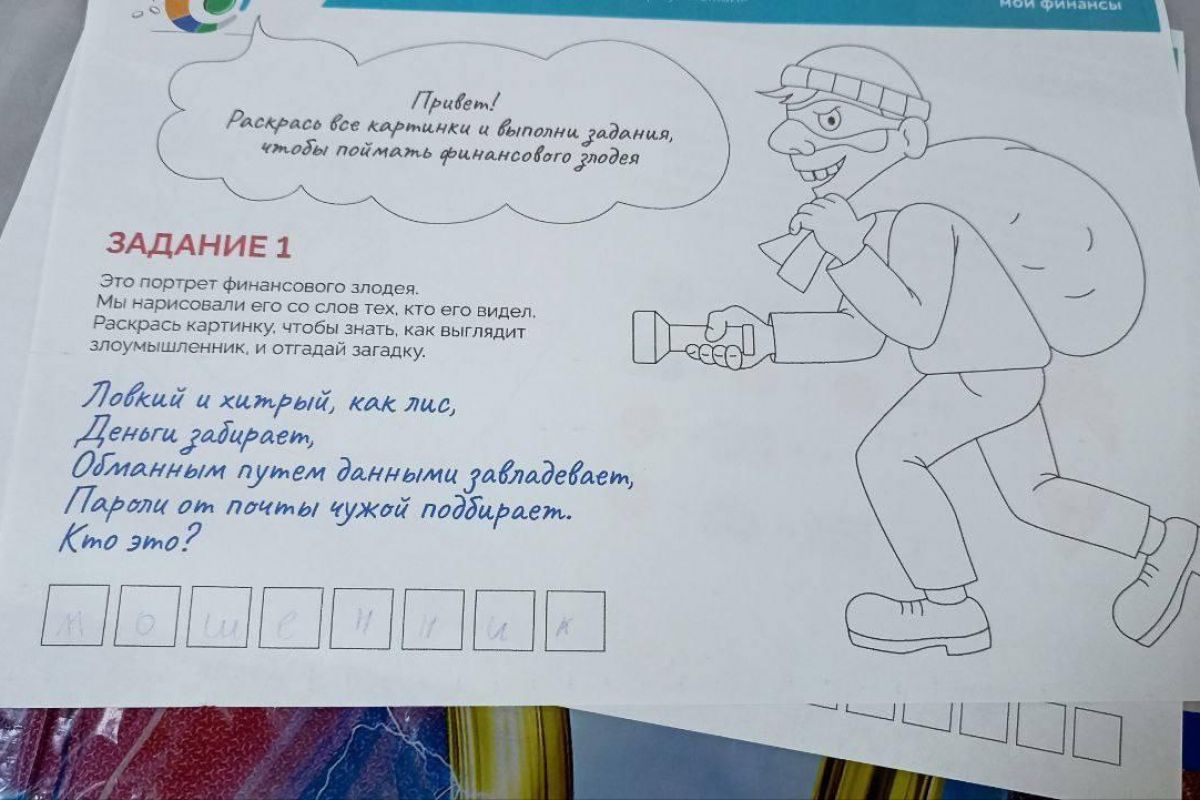 мои финансы
Привет!
Раскрась все картинки и выполни задания,
чтобы поймать финансового злодея
ЗАДАНИЕ 1
Это портрет финансового злодея.
Мы нарисовали его со слов тех, кто его видел.
Раскрась картинку, чтобы знать, как выглядит
злоумышленник, и отгадай загадку.
Ловкий и хитрый, как лис,
Деньги забирает,
Обманным путем данными завладевает,
Пароли от почты чужой подбирает.
Кто это?
м о ш е н н и к